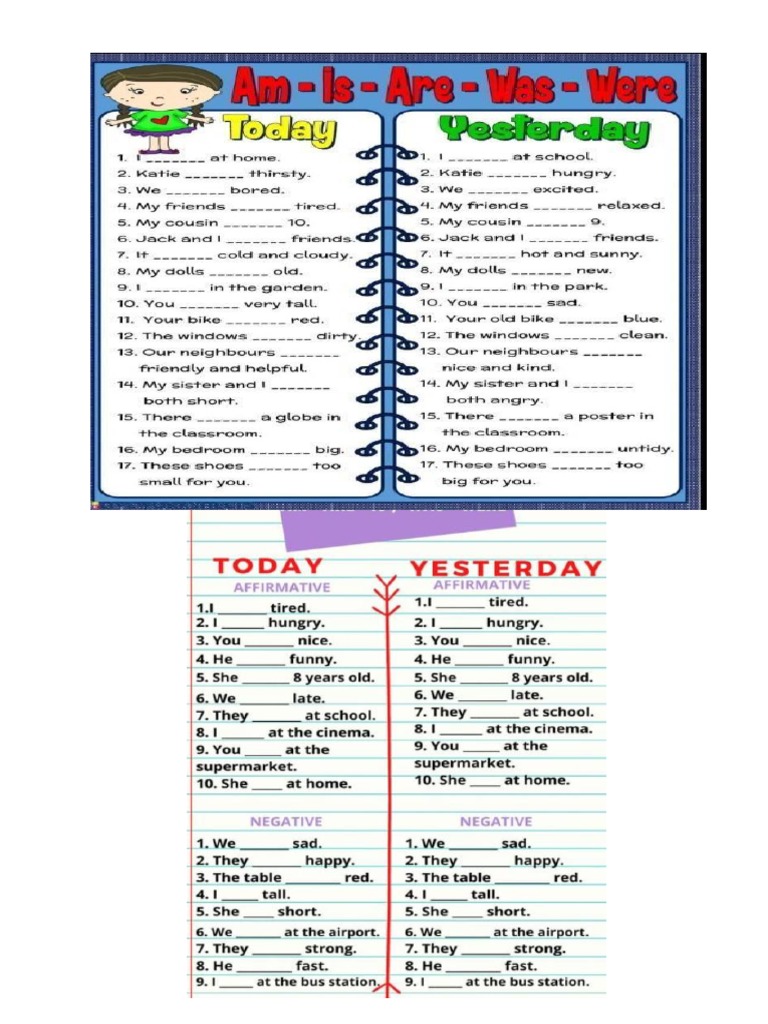 Am - Is - Are - Was - Were
Today
1. I _______ at home.
2. Katie _______ thirsty.
3. We _______ bored.
4. My friends _______ tired.
5. My cousin _______ 10.
6. Jack and I _______ friends.
7. It _______ cold and cloudy.
8. My dolls _______ old.
9. I _______ in the garden.
10. You _______ very tall.
11. Your bike _______ red.
12. The windows _______ dirty.
13. Our neighbours _______
friendly and helpful.
14. My sister and I _______
both short.
15. There _______ a globe in
the classroom.
16. My bedroom _______ big.
17. These shoes _______ too
small for you.
Yesterday
1. I _______ at school.
2. Katie _______ hungry.
3. We _______ excited.
4. My friends _______ relaxed.
5. My cousin _______ 9.
6. Jack and I _______ friends.
7. It _______ hot and sunny.
8. My dolls _______ new.
9. I _______ in the park.
10. You _______ sad.
11. Your old bike _______ blue.
12. The windows _______ clean.
13. Our neighbours _______
nice and kind.
14. My sister and I _______
both angry.
15. There _______ a poster in
the classroom.
16. My bedroom _______ untidy.
17. These shoes _______ too
big for you.
TODAY
AFFIRMATIVE
1.I _______ tired.
2. I ______ hungry.
3. You _______ nice.
4. He _______ funny.
5. She _______ 8 years old.
6. We _______ late.
7. They _______ at school.
8. I ______ at the cinema.
9. You _____ at the
supermarket.
10. She ____ at home.
NEGATIVE
1. We _______ sad.
2. They _______ happy.
3. The table ________ red.
4. I _____ tall.
5. She ____ short.
6. We ______ at the airport.
7. They _______ strong.
8. He ________ fast.
9. I _____ at the bus station.
YESTERDAY
AFFIRMATIVE
1.I _______ tired.
2. I ______ hungry.
3. You _______ nice.
4. He _______ funny.
5. She _______ 8 years old.
6. We ______ late.
7. They _______ at school.
8. I ______ at the cinema.
9. You _____ at the
supermarket.
10. She ____ at home.
NEGATIVE
1. We _______ sad.
2. They _______ happy.
3. The table ________ red.
4. I _____ tall.
5. She ____ short.
6. We ______ at the airport.
7. They _______ strong.
8. He ________ fast.
9. I _____ at the bus station.